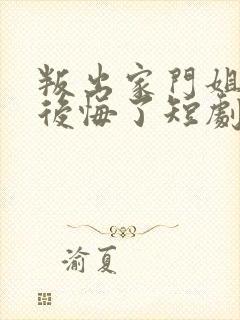 叛出家門姐
後悔了短劇
渝夏